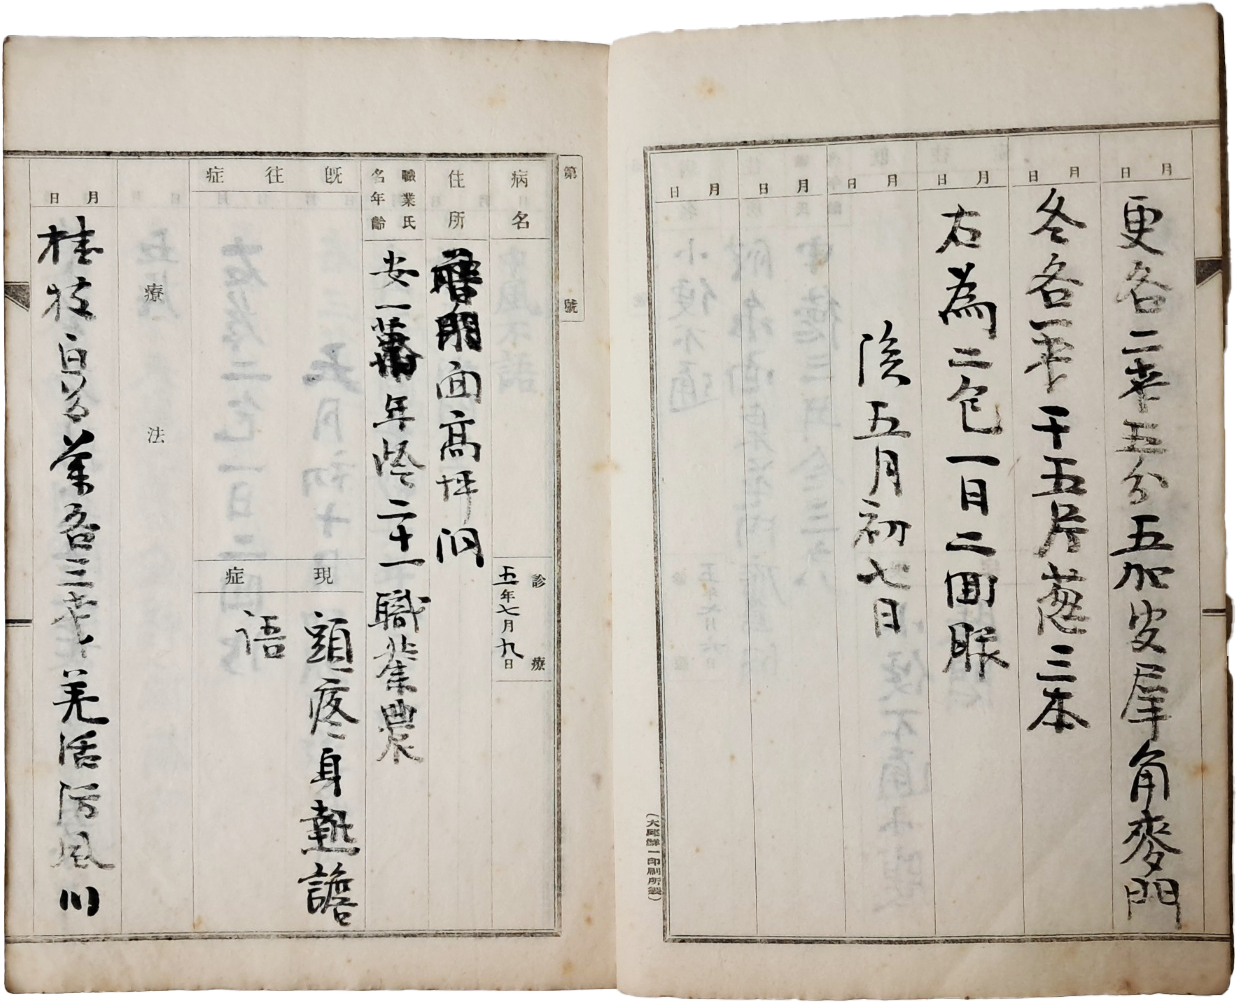 月 日
更各二戔五分五加皮犀角麥門
月 日
冬各一戔干五片葱三本
月 日
右為二包一日二回服
月 日
陰五月初七日
月 日
月 日
(大邱鮮一印刷所製)
第 號
病名
診療
五年七月九日
住所
面高坪洞
職業氏名年齡
安一 年 二十一職業農
既往症
現症
頭疼身熱譫
語
月 日
療法
月 日
桂枝白芍 各三戔 羌活防風川